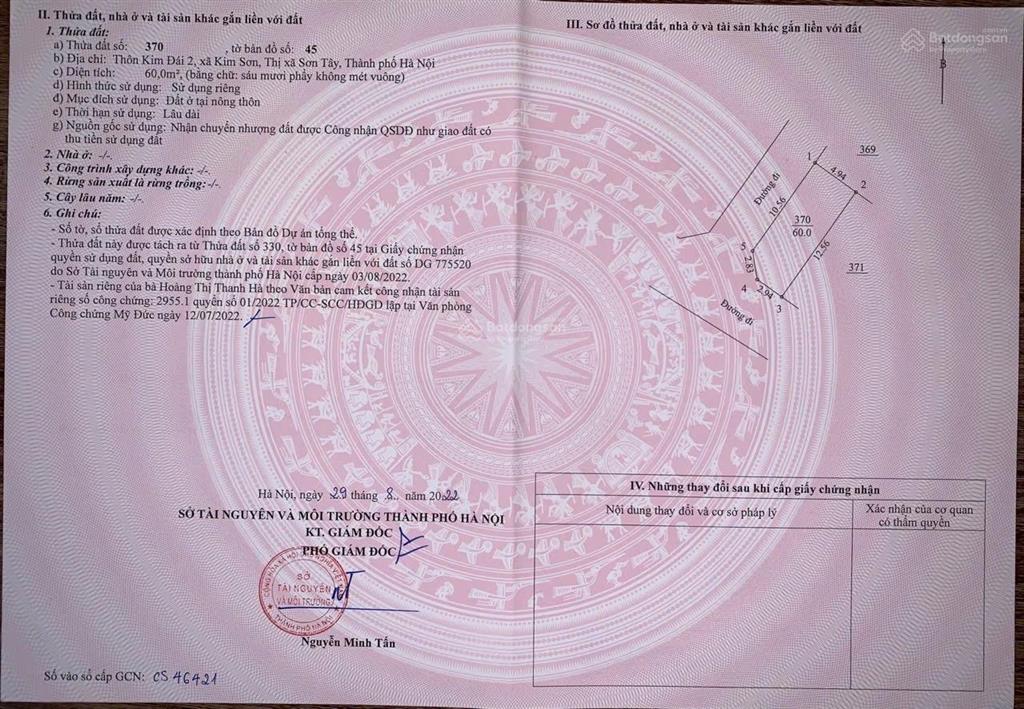 II. Thửa đất, nhà ở và tài sản khác gắn liền với đất
1. Thửa đất:
a) Thửa đất số: 370 , tờ bản đồ số: 45
b) Địa chỉ: Thôn Kim Đái 2, xã Kim Sơn, Thị xã Sơn Tây, Thành phố Hà Nội
c) Diện tích: 60,0m², (bằng chữ: sáu mươi phẩy không mét vuông)
d) Hình thức sử dụng: Sử dụng riêng
đ) Mục đích sử dụng: Đất ở tại nông thôn
e) Thời hạn sử dụng: Lâu dài
g) Nguồn gốc sử dụng: Nhận chuyển nhượng đất được Công nhận QSDĐ như giao đất có
thu tiền sử dụng đất
2. Nhà ở: -/-.
3. Công trình xây dựng khác: -/-.
4. Rừng sản xuất là rừng trồng: -/-.
5. Cây lâu năm: -/-.
6. Ghi chú:
- Số tờ, số thửa đất được xác định theo Bản đồ Dự án tổng thể.
- Thửa đất này được tách ra từ Thửa đất số 330, tờ bản đồ số 45 tại Giấy chứng nhận
quyền sử dụng đất, quyền sở hữu nhà và tài sản khác gắn liền với đất số DG 775520
do Sở Tài nguyên và Môi trường thành phố Hà Nội cấp ngày 03/08/2022.
- Tài sản riêng của bà Hoàng Thị Thanh Hà theo Văn bản cam kết công nhận tài sản
riêng số công chứng: 2955.1 quyển số 01/2022 TP/CC-SCC/HĐGD lập tại Văn phòng
Công chứng Mỹ Đức ngày 12/07/2022.
Hà Nội, ngày 29 tháng 8 năm 2022
SỞ TÀI NGUYÊN VÀ MÔI TRƯỜNG THÀNH PHỐ HÀ NỘI
KT. GIÁM ĐỐC
PHÓ GIÁM ĐỐC
SỞ
TÀI NGUYÊN
VÀ MÔI TRƯỜNG
THÀNH PHỐ HÀ NỘI
Nguyễn Minh Tấn
Số vào sổ cấp GCN: CS 46421
III. Sơ đồ thửa đất, nhà ở và tài sản khác gắn liền với đất
Batdongsan
B
369
1
4.94
2
Đường đi
10.56
370
60.0
12.56
371
5
2.83
4
2.94
3
Đường đi
Batdongsan
IV. Những thay đổi sau khi cấp giấy chứng nhận
Nội dung thay đổi và cơ sở pháp lý
Xác nhận của cơ quan
có thẩm quyền